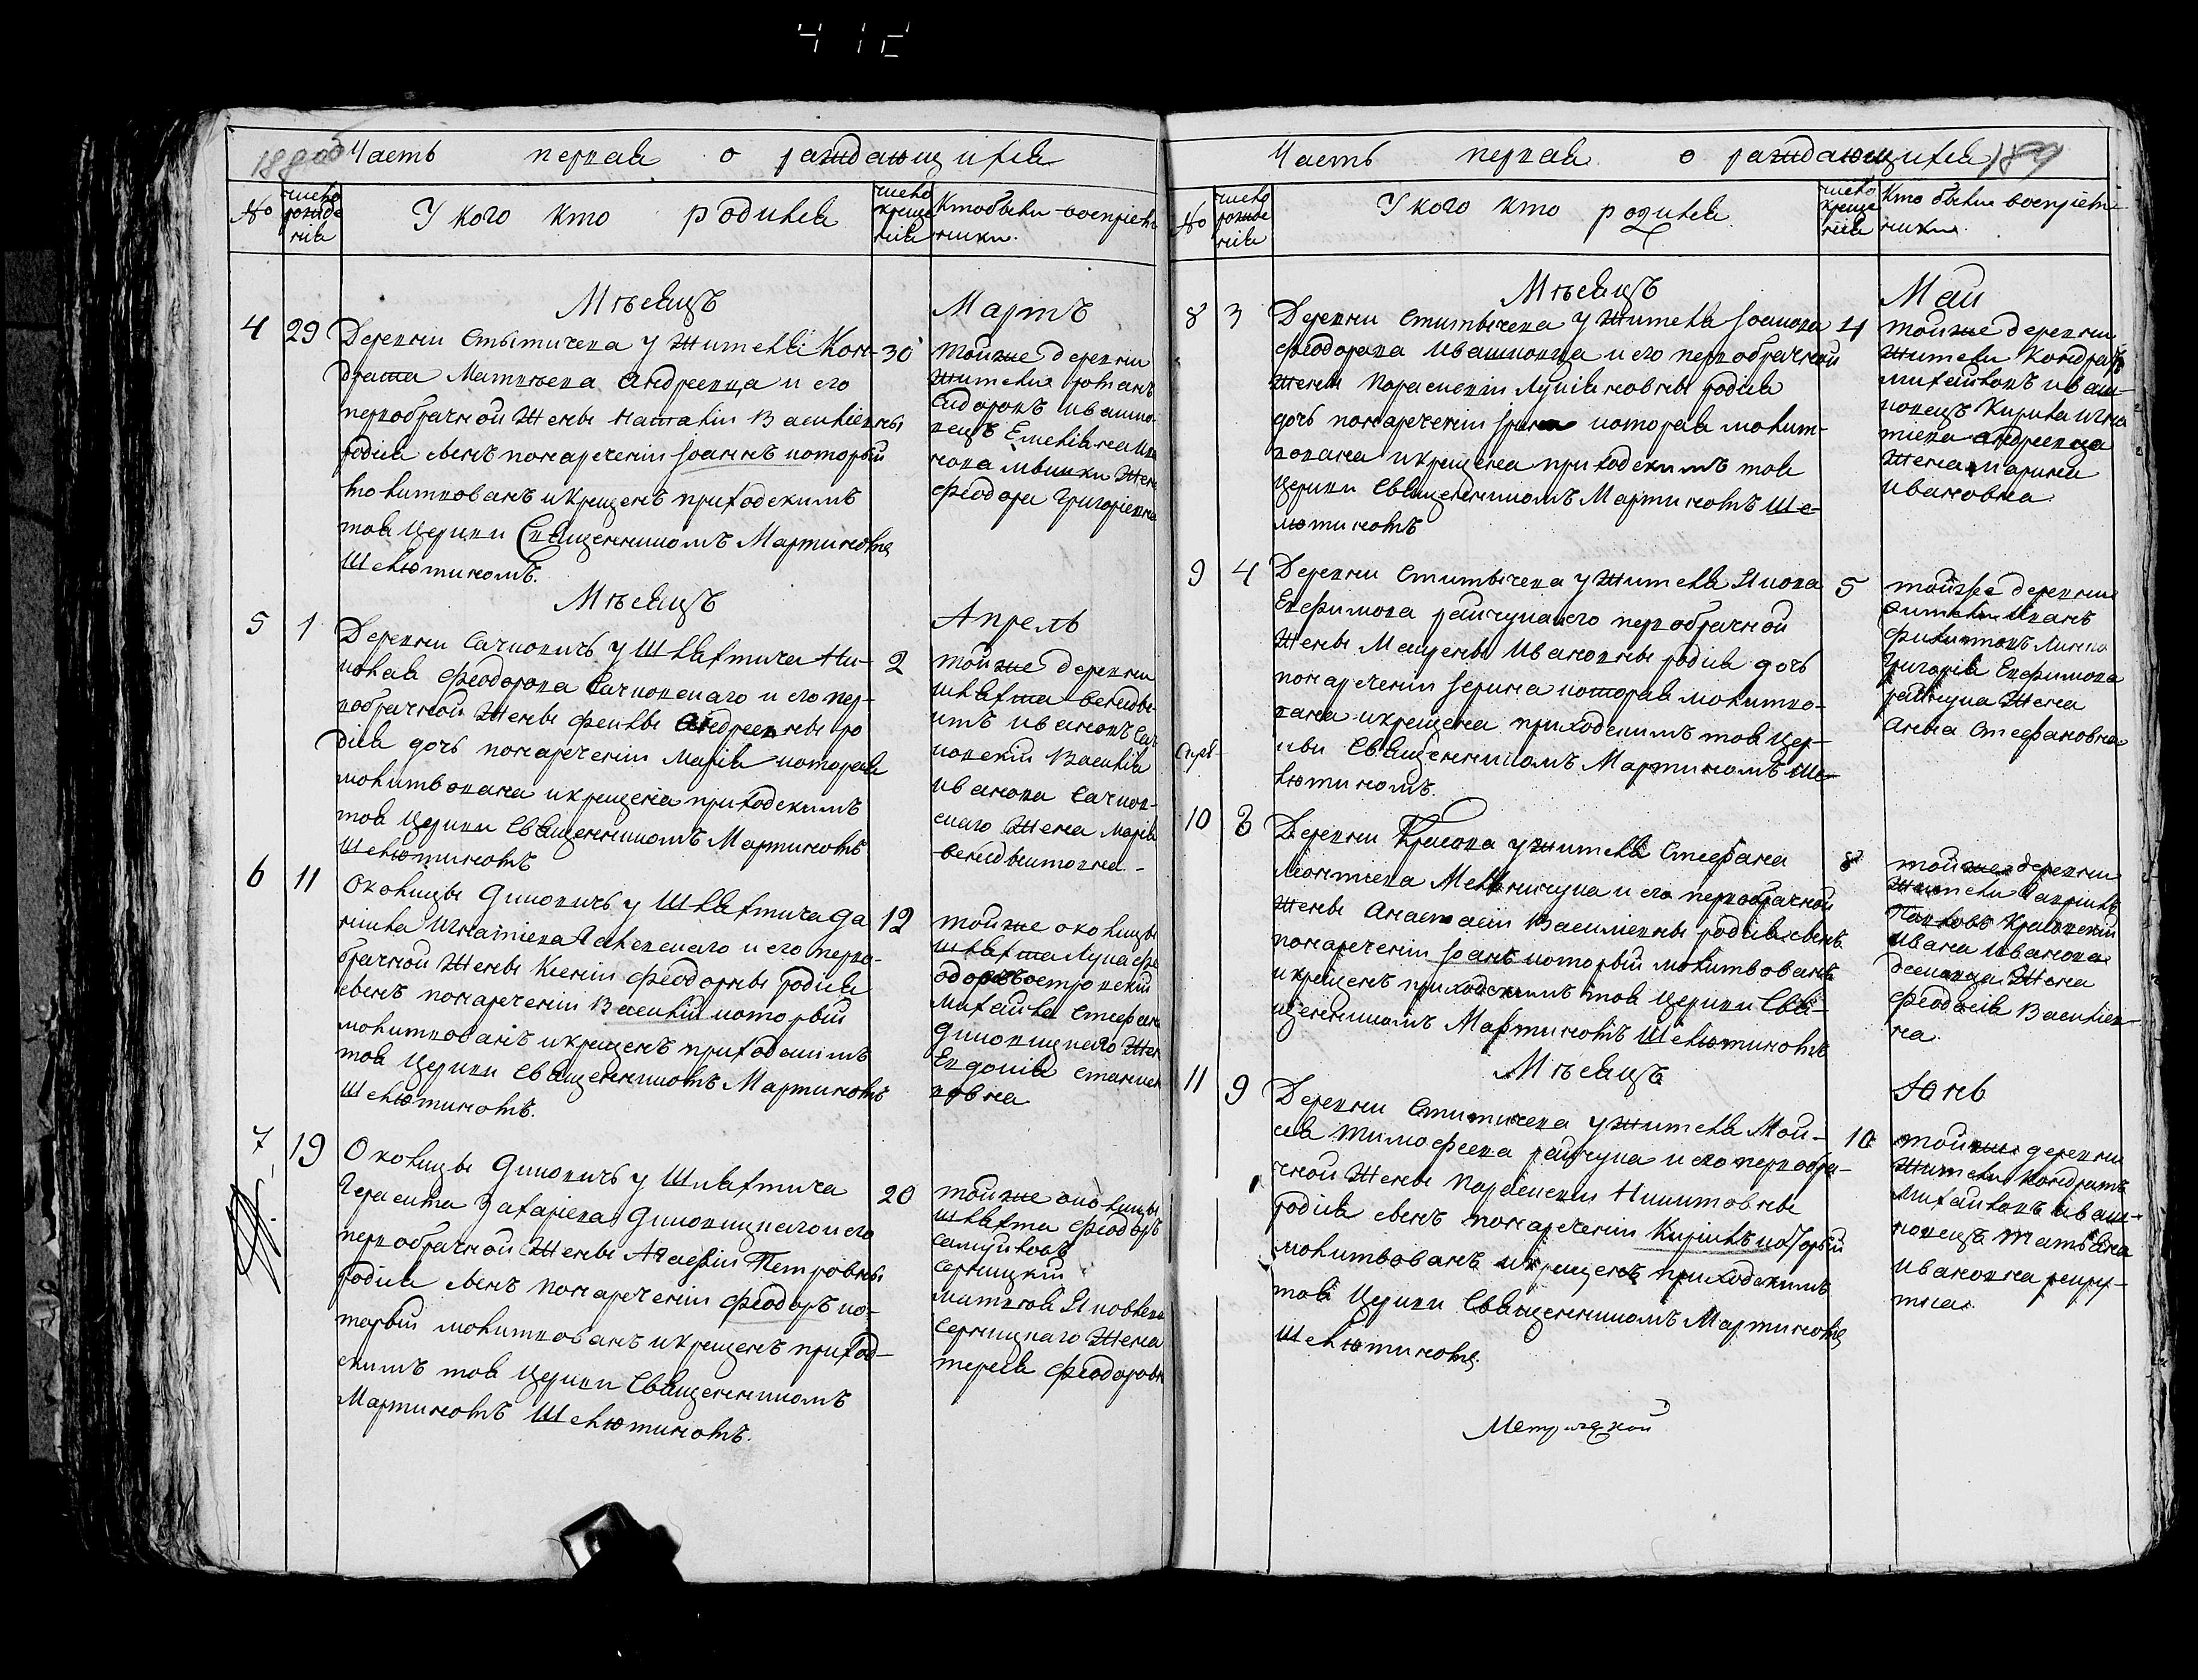 412
Часть первая о раждающихся
№
число рожде нія
У кого кто родился
число креще нія
Кто были воспріем-
ники.
Мѣсяцъ
Мартъ
4 29 Деревни Стытичева у жителя Кон-
драта Матвѣева Андреевца и его
первобрачной жены Наталіи Васильевны
родися сынъ понареченіи Іоаннъ который
молитвованъ и крещенъ приходскимъ
тоя церкви Священникомъ Мартиномъ
Шелютиномъ.
30 тойже деревни
житель
Сидоровъ ивашко-
вецъ Емельяна Ива
нова жена
Феодора Григоріевна
Мѣсяцъ
Апрель
5 1 Деревни Сачковичъ у Шляхтича Ни-
колая Феодорова Сачковскаго и его пер-
вобрачной жены Феклы Андреевны ро
дися дочь понареченіи Марія которая
молитвована и крещена приходскимъ
тоя церкви Священникомъ Мартиномъ
Шелютиномъ
2 тойже деревни
шляхта Бенеды-
ктъ Ивановъ Сач
ковскій Василія
Иванова Сачков-
скаго жена Марія
Бенедыктовна
6 11 Околицы Диковичъ у Шляхтича Да
ніила Игнатіева и его перво-
брачной жены Ксеніи Феодоровны родися
сынъ понареченіи Василій который
молитвованъ и крещенъ приходскимъ
тоя церкви Священникомъ Мартиномъ
Шелютиномъ.
12 тойже околицы
шляхта Лука Фе
одоровъ островскій
Михайла Стефана
Диковицкаго жен
Евдокія Станисл
вовна
7 19 Околицы Диковичъ у Шляхтича
Герасима Захарiева Диковицкаго и его
первобрачной жены Агафіи Петровны
родися сынъ понареченіи Феодоръ ко-
торый молитвованъ и крещенъ приход-
скимъ тоя церкви Священникомъ
Мартиномъ Шелютиномъ.
20 тойже околицы
шляхта Феодоръ
Самуйловъ
Серницкій
Матвѣя Яковлева
Серницкаго жена
Тереся Феодоровн
Часть первая о раждающихся 189
№
число рожде нія
У кого кто родился
число креще нія
Кто были воспріем-
ники.
Мѣсяцъ
Май
8 3 Деревни Стытычева у жителя Іоанна
Феодорова Ивашковца и его первобрачной
жены Параскевіи Лукіановны родися
дочь понареченіи которая молит-
вована и крещена приходскимъ тоя
церкви Священникомъ Мартиномъ Ше-
лютиномъ
4 тойже деревни
житель Кондратъ
Михайловъ иваш-
ковецъ Кирила Игна
тіева Андреевца
жена Марина
Ивановна
9 4 Деревни Стытычева у жителя Якова
Ефимова райчука и его первобрачной
жены Матрены Ивановны родися дочь
понареченіи Іерина которая молитво-
вана и крещена приходскимъ тоя цер-
кви Священникомъ Мартиномъ Ше-
лютиномъ.
5 тойже деревни
житель Иванъ
Григорія Ефимова
райчука жена
Анна Стефановна
10 8 Деревни Красова у жителя Стефана
Леонтіева Мельничука и его первобрачной
жены Анастасіи Васильевны родися сынъ
понареченіи Іоанъ который молитвованъ
и крещенъ приходскимъ тоя церкви Свя-
щенникомъ Мартиномъ Шелютиномъ
8 тойже деревни
житель
Ивана Иванова
жена
Феодосія Васильев-
на.
Мѣсяцъ
Юнь
11 9 Деревни Стытичева у жителя Мои-
сея Тимофеева райчука и его первобра-
чной жены Параскевіи Никитовны
родися сынъ понареченіи Кирилъ который
молитвованъ и крещенъ приходскимъ
тоя церкви Священникомъ Мартиномъ
Шелютиномъ.
10 тойже деревни
житель Кондратъ
Михайловъ иваш-
ковецъ Татьяна
Ивановна рекру-
тка.